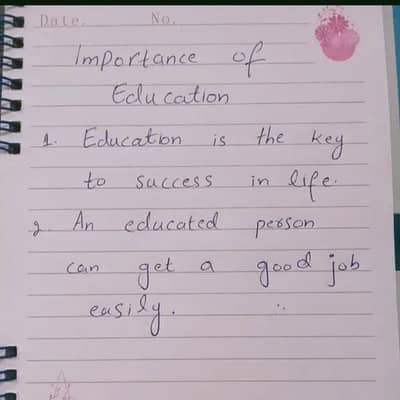 Date. No.
Importance of
Education
1. Education is the key
to success in life.
2. An educated person
can get a good job
easily.